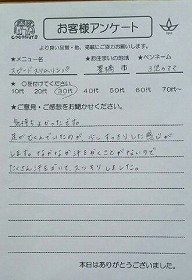 お客様アンケート
より良い品質・他、掲載にご協力お願いします。
★メニュー名 ★お住まいの地域 ★ペンネーム
スピードスリムトラップ 豊橋市 3児のママ
★○を付けてください。
10代 20代 30代 40代 50代 60代 70代~
★ご意見・ご感想をお聞かせください。
気持ちよかったです。
足がむくんでいたのが 少しすっきりした感じが
します。なかなか汗をかくことがないので
たくさん汗をかいて、スッキリしました。
本日はありがとうございました。